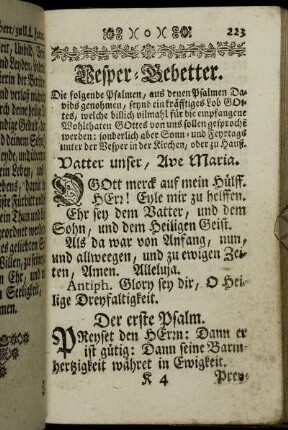 223
Vesper-Gebetter.
Die folgende Psalmen, aus denen Psalmen Da-
vids genohmen, seynd ein kräfftiges Lob GOt-
tes, welche billich vilmahl für die empfangene
Wohlthaten GOttes von uns sollen gesprochen
werden: sonderlich aber Sonn- und Feyrtags
unter der Vesper in der Kirchen, oder zu Hauß.
Vatter unser, Ave Maria.
O GOtt merck auf mein Hülff.
HErr! Eyle mir zu helffen.
Ehr sey dem Vatter, und dem
Sohn, und dem Heiligen Geist.
Als da war von Anfang, nun,
und allweegen, und zu ewigen Zei-
ten, Amen. Alleluja.
Antiph. Glory sey dir, O Hei-
lige Dreyfaltigkeit.
Der erste Psalm.
PReyset den HErrn: Dann er
ist gütig: Dann seine Barm-
hertzigkeit währet in Ewigkeit.
K 4 Prey-